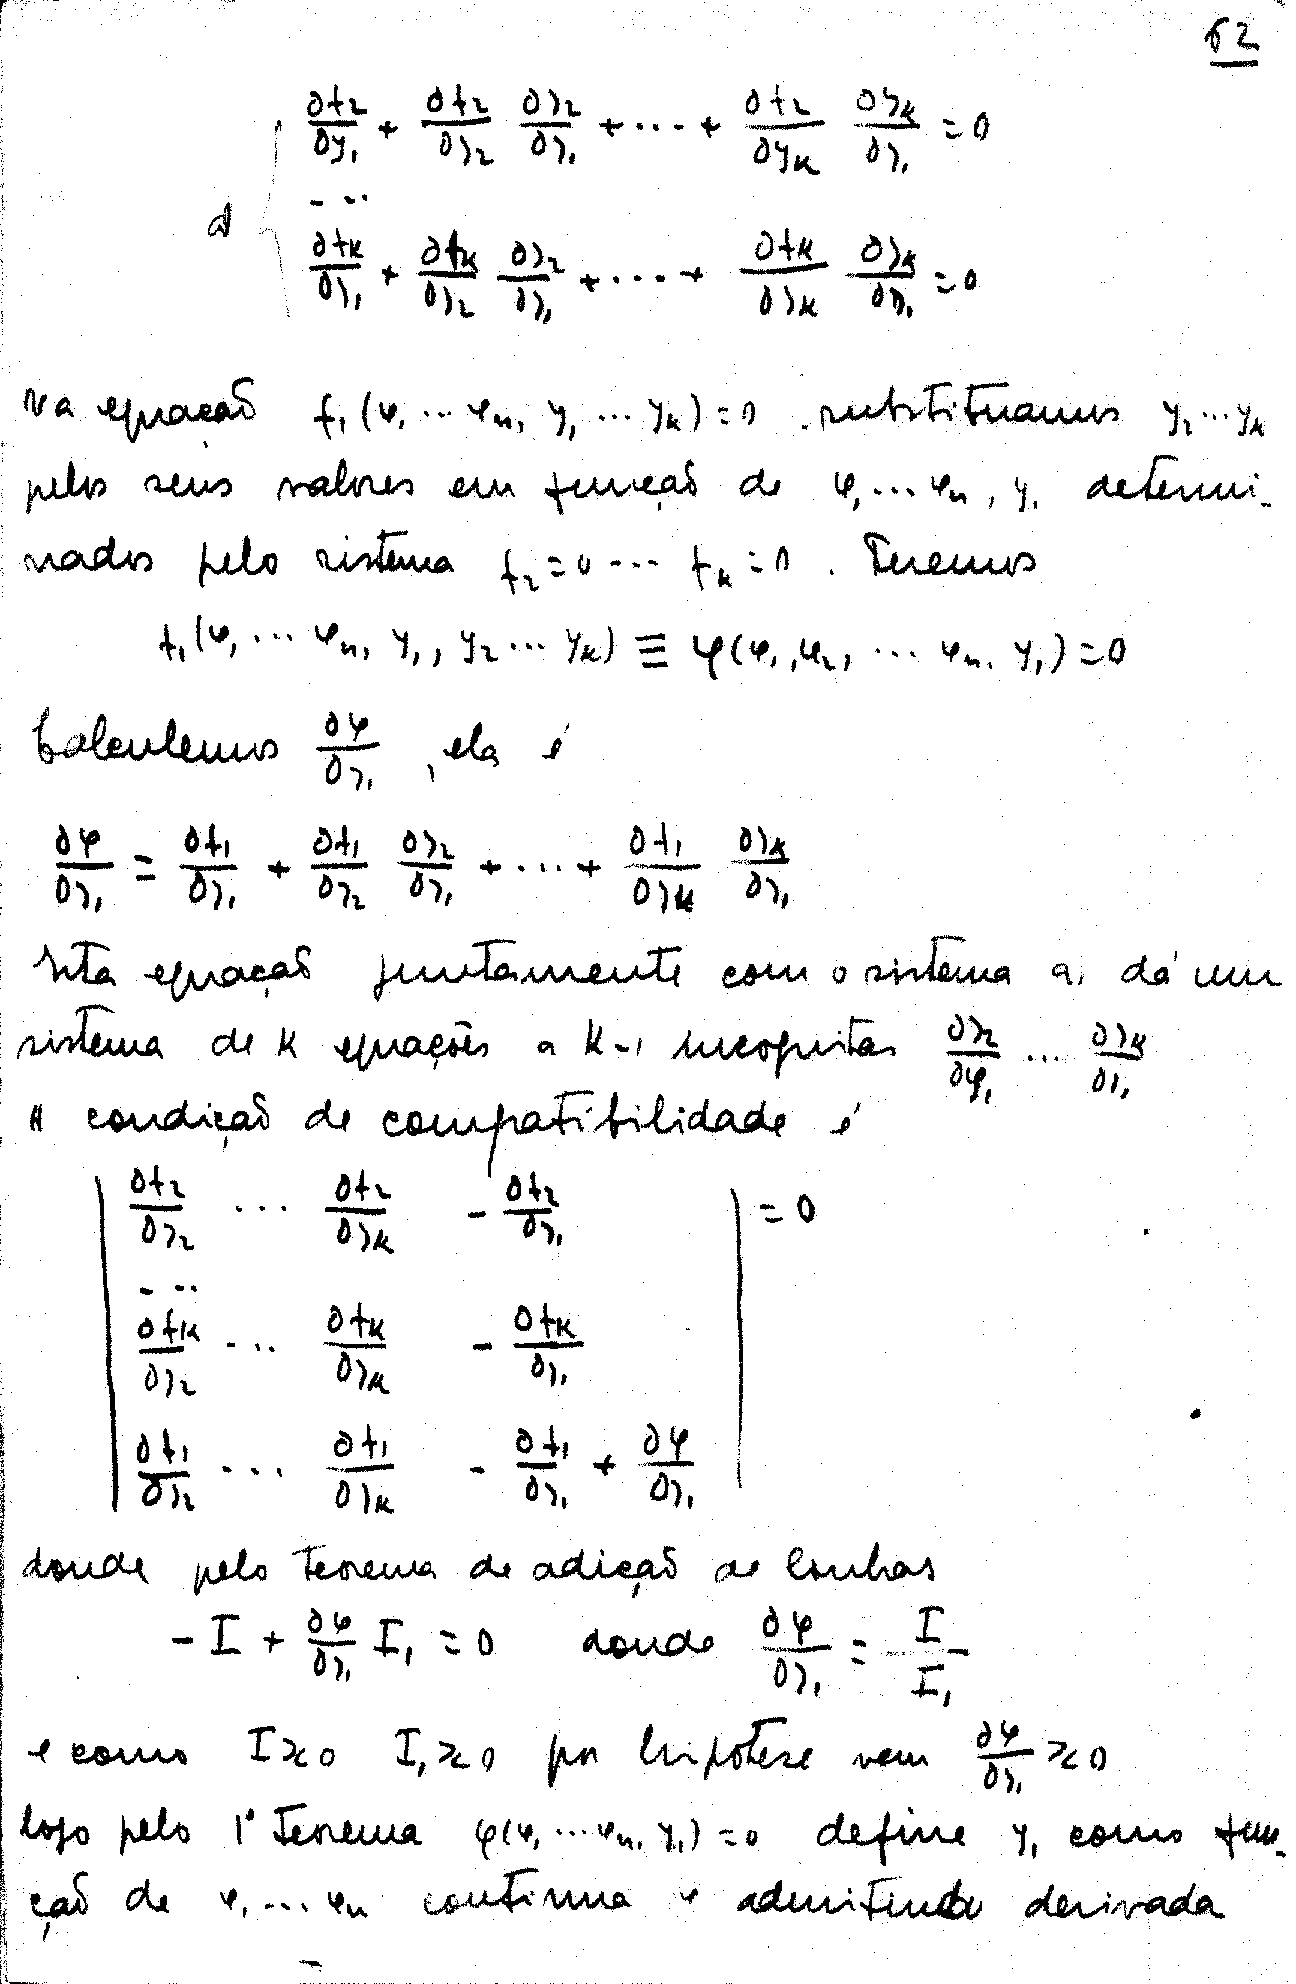 62
a) { ∂f₂/∂y₁ + ∂f₂/∂y₂ ∂y₂/∂y₁ + ... + ∂f₂/∂yₖ ∂yₖ/∂y₁ = 0
...
∂fₖ/∂y₁ + ∂fₖ/∂y₂ ∂y₂/∂y₁ + .... + ∂fₖ/∂yₖ ∂yₖ/∂y₁ = 0
Na equação f₁(φ₁ ... φₙ, y₁ ... yₖ) = 0 substituamos y₂ ... yₖ
pelos seus valores em função de φ₁ ... φₙ, y₁ determi-
nados pelo sistema f₂ = 0 ... fₖ = 0. Teremos
f₁(φ₁ ... φₙ, y₁, y₂ ... yₖ) ≡ φ(φ₁, φ₂, ... φₙ, y₁) = 0
Calculemos ∂φ/∂y₁, ela é
∂φ/∂y₁ = ∂f₁/∂y₁ + ∂f₁/∂y₂ ∂y₂/∂y₁ + ... + ∂f₁/∂yₖ ∂yₖ/∂y₁
Esta equação juntamente com o sistema a) dá um
sistema de k equações a k-1 incognitas ∂y₂/∂φ₁ ... ∂yₖ/∂y₁
A condição de compatibilidade é
| ∂f₂/∂y₂ ... ∂f₂/∂yₖ - ∂f₂/∂y₁ | = 0
...
∂fₖ/∂y₂ ... ∂fₖ/∂yₖ - ∂fₖ/∂y₁
∂f₁/∂y₂ ... ∂f₁/∂yₖ - ∂f₁/∂y₁ + ∂φ/∂y₁
donde pelo teorema de adição de linhas
- I + ∂φ/∂y₁ I₁ = 0 donde ∂φ/∂y₁ = I/I₁
e como I ≷ 0 I₁ ≷ 0 por hipótese vem ∂φ/∂y₁ ≷ 0
logo pelo 1º teorema φ(φ₁ ... φₙ, y₁) = 0 define y₁ como fun-
ção de φ₁ ... φₙ continua e admitindo derivada